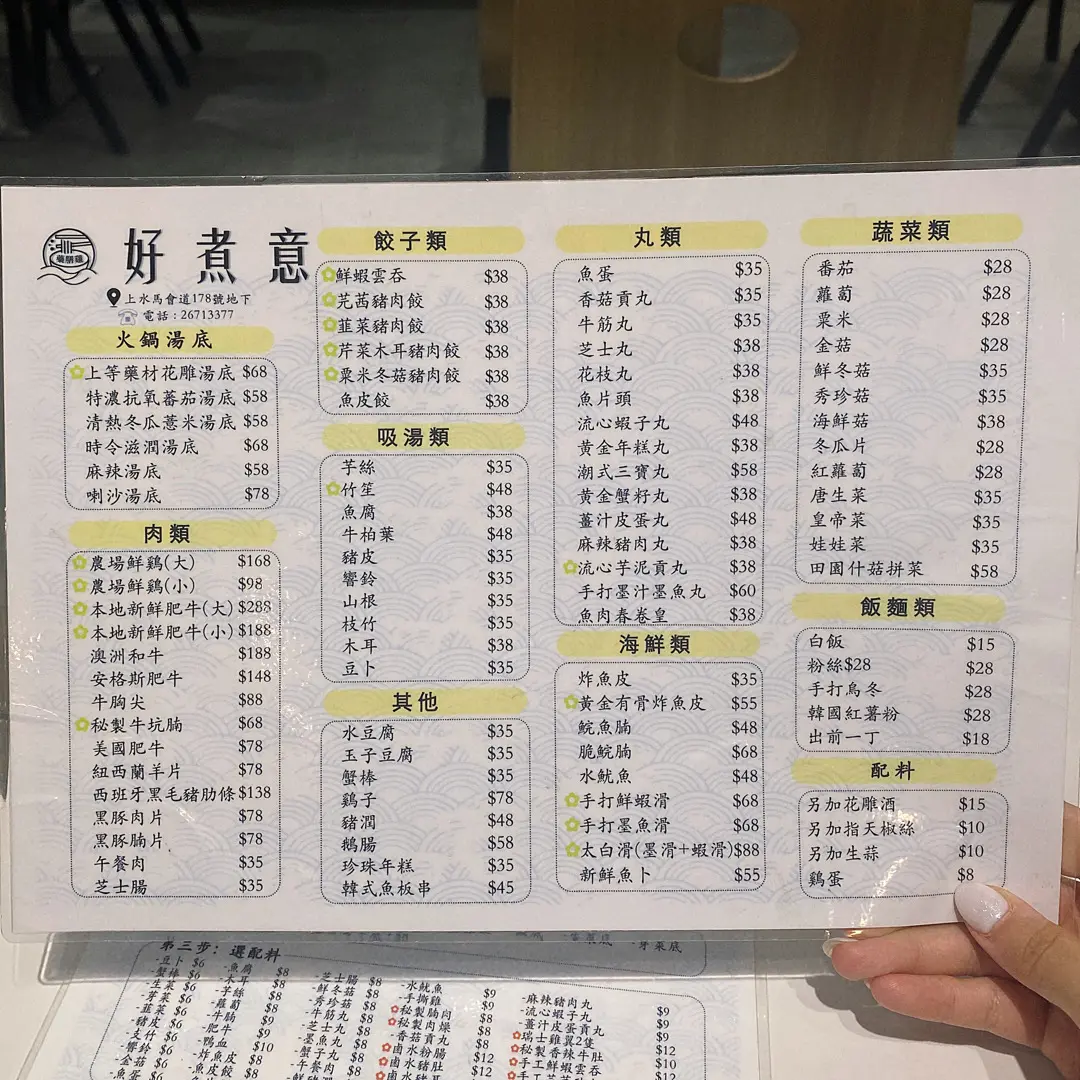 藥膳雞
好煮意
上水馬會道178號地下
電話:26713377
火鍋湯底
上等藥材花雕湯底 $68
特濃抗氧蕃茄湯底 $58
清熱冬瓜薏米湯底 $58
時令滋潤湯底 $68
麻辣湯底 $58
喇沙湯底 $78
肉類
農場鮮鷄(大) $168
農場鮮鷄(小) $98
本地新鮮肥牛(大) $288
本地新鮮肥牛(小) $188
澳洲和牛 $188
安格斯肥牛 $148
牛胸尖 $88
秘製牛坑腩 $68
美國肥牛 $78
紐西蘭羊片 $78
西班牙黑毛豬肋條 $138
黑豚肉片 $78
黑豚腩片 $78
午餐肉 $35
芝士腸 $35
餃子類
鮮蝦雲吞 $38
芫茜豬肉餃 $38
韮菜豬肉餃 $38
芹菜木耳豬肉餃 $38
粟米冬菇豬肉餃 $38
魚皮餃 $38
吸湯類
芋絲 $35
竹笙 $48
魚腐 $38
牛柏葉 $48
豬皮 $35
響鈴 $35
山根 $35
枝竹 $35
木耳 $38
豆卜 $35
其他
水豆腐 $35
玉子豆腐 $35
蟹棒 $35
鷄子 $78
豬潤 $48
鵝腸 $58
珍珠年糕 $35
韓式魚板串 $45
丸類
魚蛋 $35
香菇貢丸 $35
牛筋丸 $35
芝士丸 $38
花枝丸 $38
魚片頭 $38
流心蝦子丸 $48
黃金年糕丸 $38
潮式三寶丸 $58
黃金蟹籽丸 $38
薑汁皮蛋丸 $48
麻辣豬肉丸 $38
流心芋泥貢丸 $38
手打墨汁墨魚丸 $60
魚肉春卷皇 $38
海鮮類
炸魚皮 $35
黃金有骨炸魚皮 $55
鯇魚腩 $48
脆鯇腩 $68
水魷魚 $48
手打鮮蝦滑 $68
手打墨魚滑 $68
太白滑(墨滑+蝦滑) $88
新鮮魚卜 $55
蔬菜類
番茄 $28
蘿蔔 $28
粟米 $28
金菇 $28
鮮冬菇 $35
秀珍菇 $35
海鮮菇 $38
冬瓜片 $28
紅蘿蔔 $28
唐生菜 $35
皇帝菜 $35
娃娃菜 $35
田園什菇拼菜 $58
飯麵類
白飯 $15
粉絲$28 $28
手打烏冬 $28
韓國紅薯粉 $28
出前一丁 $18
配料
另加花雕酒 $15
另加指天椒絲 $10
另加生蒜 $10
鷄蛋 $8
第三步:選配料
-豆卜 $6
-蟹棒 $6
-生菜 $6
-芽菜 $6
-韮菜 $6
-魚腐 $8
-木耳 $8
-芋絲 $8
-蘿蔔 $8
-芝士腸 $8
-鮮冬菇 $8
-秀珍菇 $8
-牛筋丸 $8
-水魷魚 $9
-麻辣豬肉丸 $9
-流心蝦子丸 $9
-薑汁皮蛋貢丸 $9